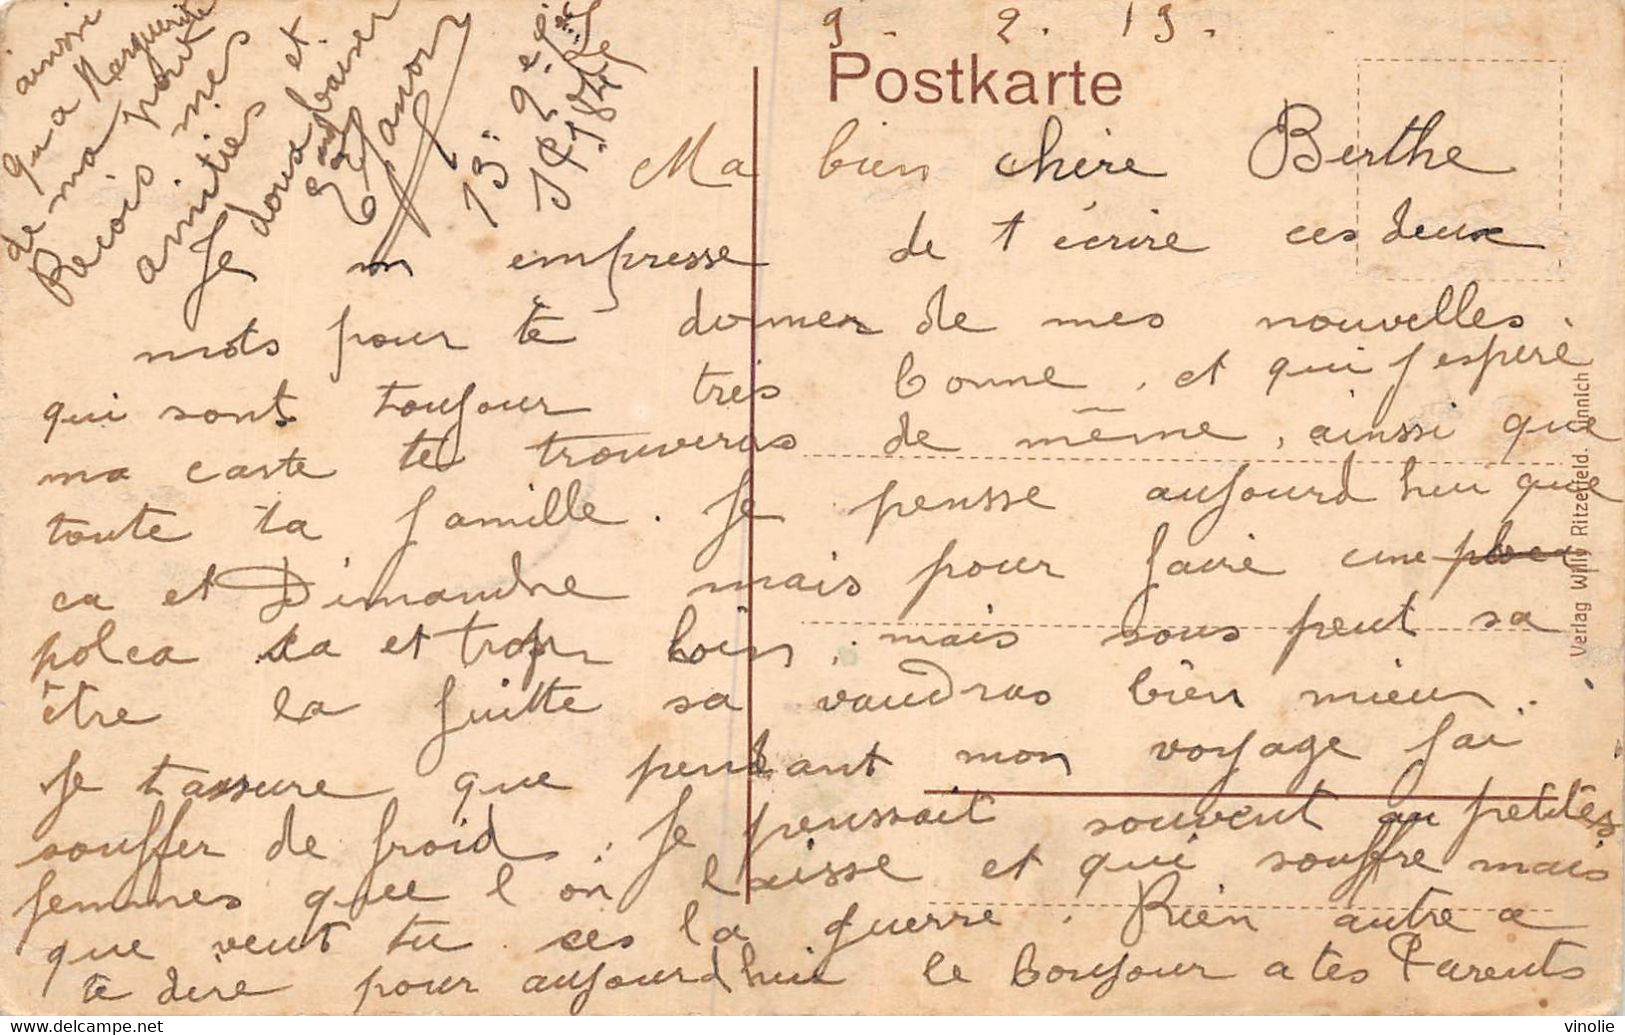 9. 2. 19.
Postkarte
Ma bien chère Berthe
Je m empresse de t écrire ces deux
mots pour te donner de mes nouvelles.
qui sont toujour très bonne, et qui j espère
ma carte te trouveras de même, ainsi que
toute ta famille. Je pensse aujourd hui que
ca et Dimandne mais pour faire une
polca sa et trop loin, mais sous peut sa
être la fuitte sa vaudras bien mieu..
Je tassure que pendant mon voyage jai
souffer de froid. Je penssait souvent au petites
femmes quee l on laisse et qui souffre mais
que veut tu ces la guerre. Rien autre a
te dire pour aujourdhui le bonjour a tes Parents
ainsi
qu a Marguerite
de ma part
Recois mes
amities et
doux baiser
13e
Verlag Willy Ritzefeld. Linnich
delcampe.net
vinolie